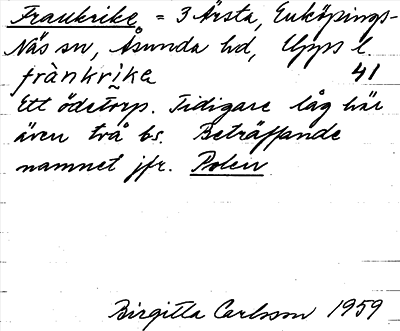 Frankrike = 3 Årsta, Enköpings-
Näs sn, Åsunda hd, Upps l.
frànkrìke 41
Ett ödetorp. Tidigare låg här
även två bs. Beträffande
namnet jfr. Polen
Birgitta Carlsson 1959